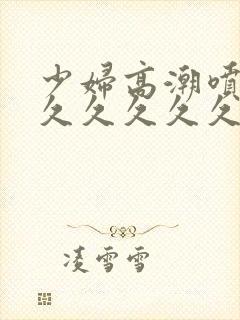 少婦高潮噴
久久久久久
凌雪雪